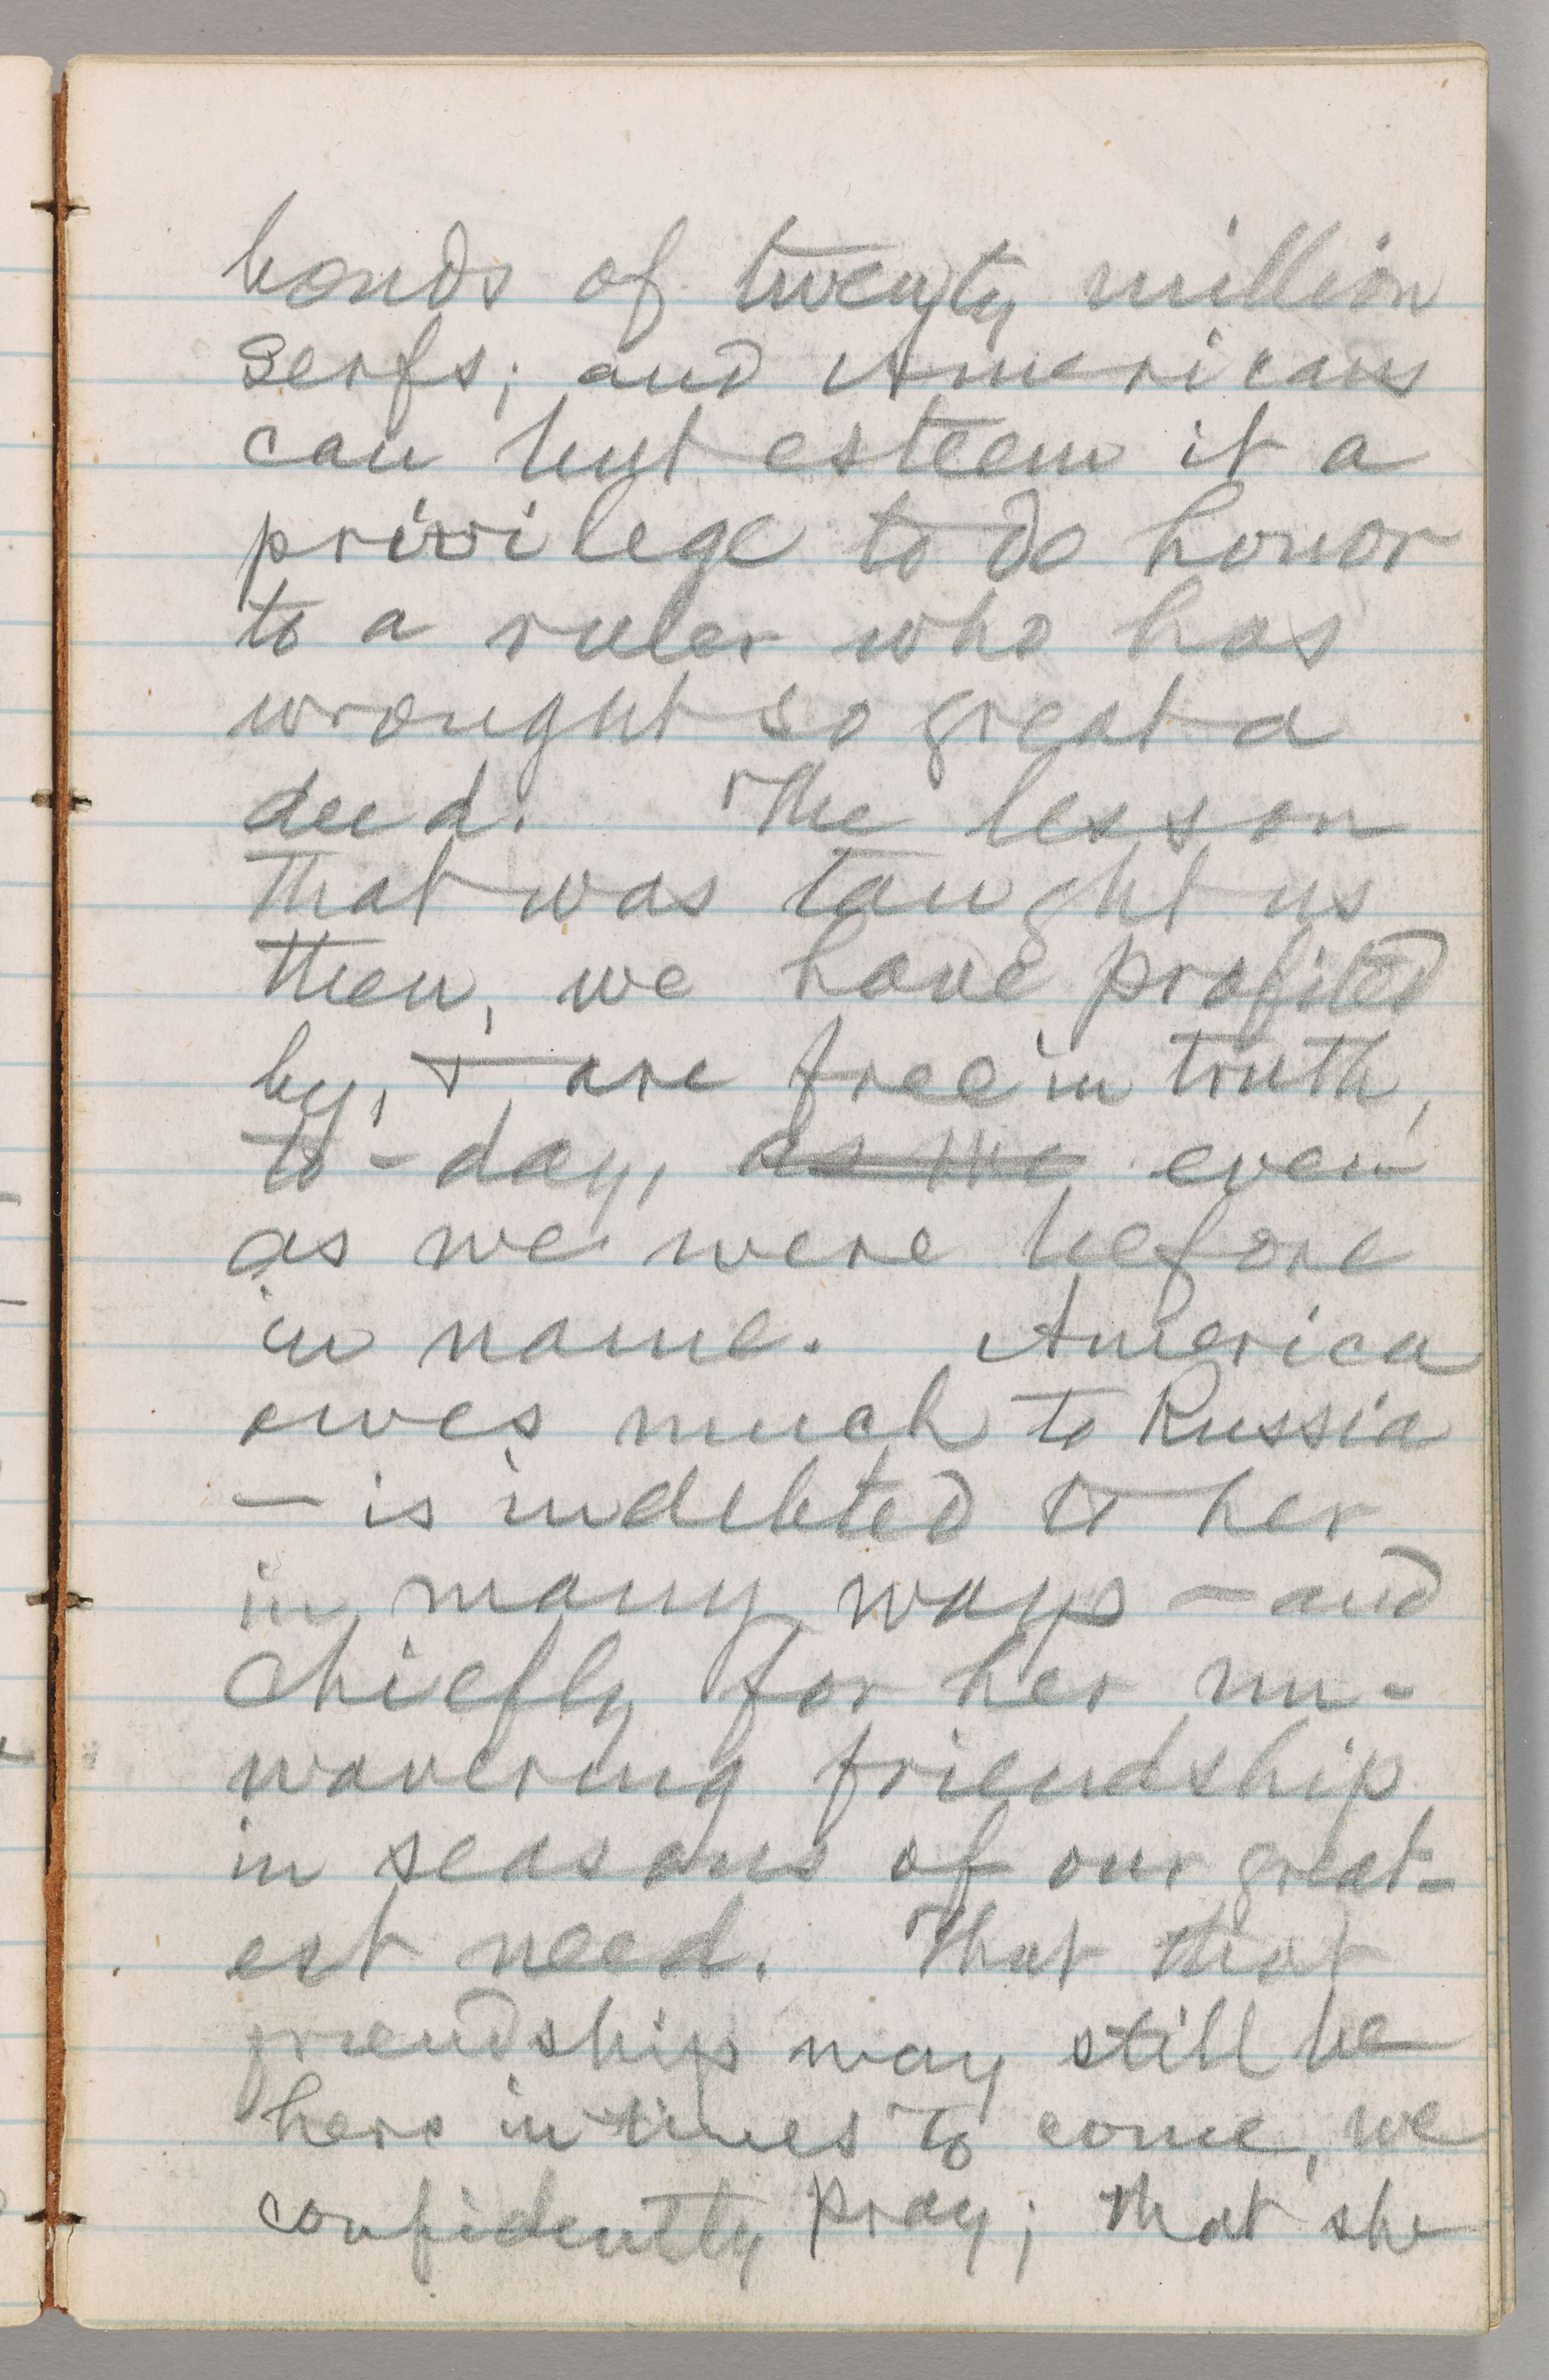 bonds of twenty million
serfs; and Americans
can but esteem it a
privilege to do honor
to a ruler who has
wrought so great a
deed. The lesson
that was taught us
then, we have profited
by, & are free in truth,
to-day, as we even
as we were before
in name. America
owes much to Russia
— is indebted to her
in many ways — and
chiefly for her un-
wavering friendship
in seasons of our great-
est need. That that
friendship may still be
hers in times to come, we
confidently pray; that she